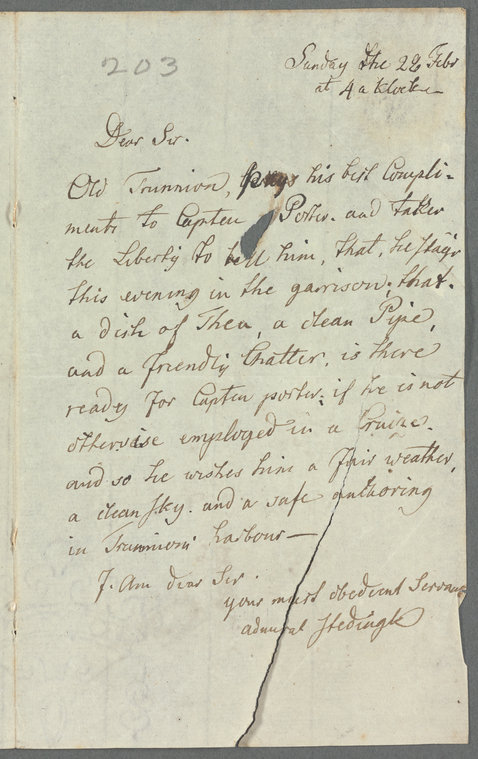 203
Sunday the 26 Febr
at 4 a Klock
Dear Sir.
Old Trunnion, pays his best Compli-
ments to Capten Porter. and takes
the Liberty to tell him, that, he stays
this evening in the garrison; that.
a dish of Thea, a clean Pipe,
and a friendly Chatter, is there
ready for Capten porter. if he is not
otherwise employed in a Cruize.
and so he wishes him a fair weather,
a clean sky. and a safe anchoring
in Trunnions harbour—
J. Am dear Sir.
your most obedient Servant
admiral Stedingk